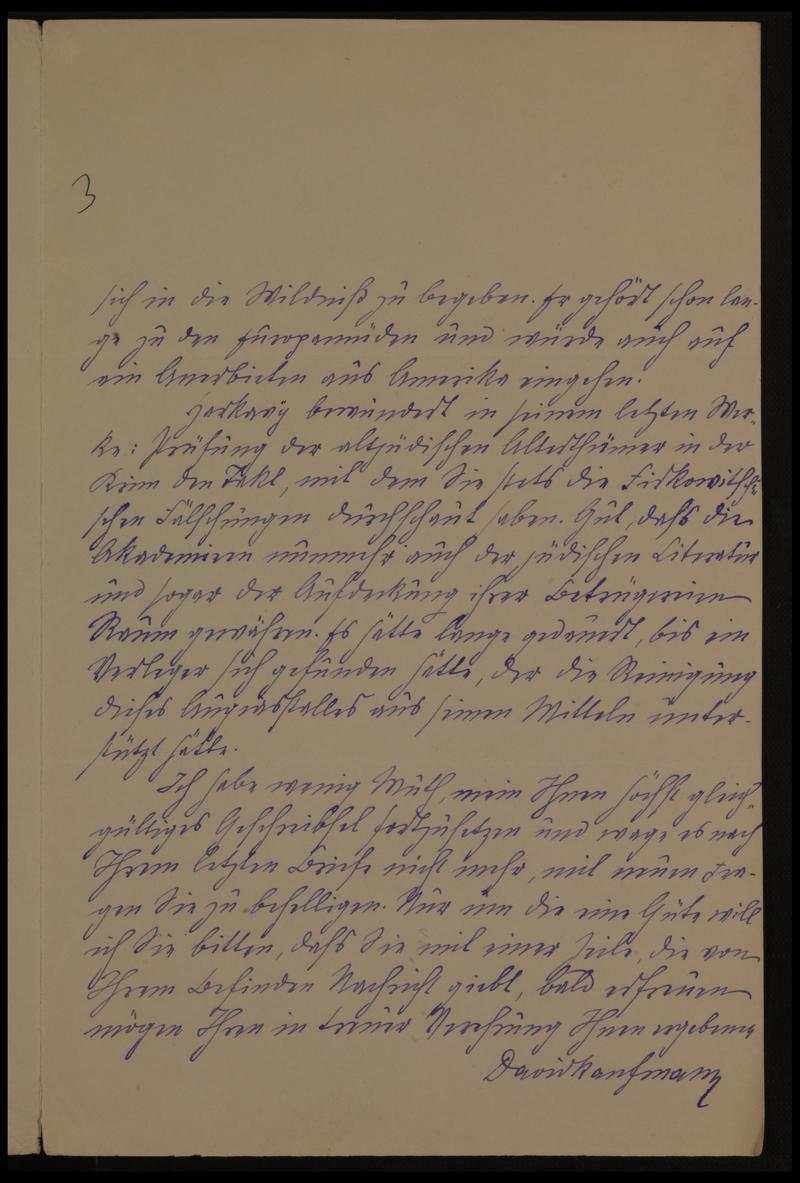 3
sich in die Wildniß zu begeben. Er gehört schon lan-
ge zu den Europamüden und würde auch auf
ein Anerbieten aus Amerika eingehen.
Harkavy bewundert in seinem letzten Wer-
ke: Prüfung der altjüdischen Alterthümer in der
Krim den Takt, mit dem Sie stets die Firkowitsch-
schen Fälschungen durchschaut haben. Gut, daß die
Akademieen nunmehr auch der jüdischen Literatur
und sogar der Aufdeckung ihrer Betrügereien
Raum gewähren. Es hätte lange gedauert, bis ein
Verleger sich gefunden hätte, der die Reinigung
dieses Augiasstalles aus seinen Mitteln unter-
stützt hätte.
Ich habe wenig Muth, mein Ihnen höchst gleich-
gültiges Geschreibsel fortzusetzen und wage es nach
Ihrem letzten Briefe nicht mehr, mit neuen Fra-
gen Sie zu behelligen. Nur um die eine Güte will
ich Sie bitten, daß Sie mit einer Zeile, die von
Ihrem Befinden Nachricht giebt, bald erfreuen
mögen Ihren in treuer Verehrung Ihnen ergebenen
David Kaufmann